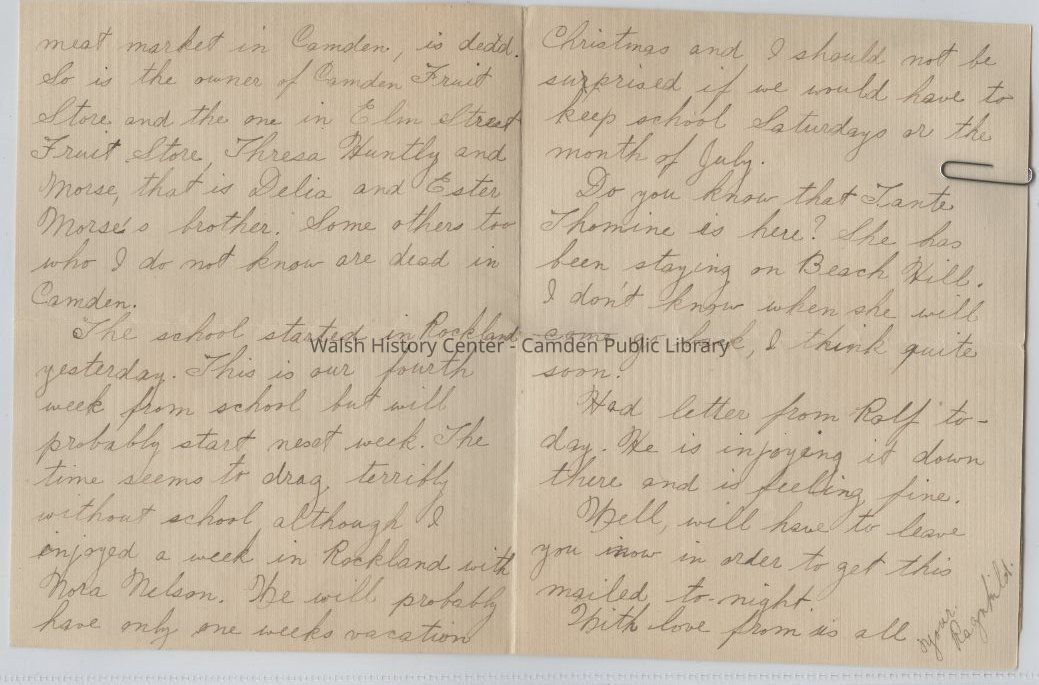 meat market in Camden, is dead.
So is the owner of Camden Fruit
Store and the one in Elm Street
Fruit Store, Thresa Huntly and
Morse, that is Delia and Ester
Morse's brother. Some others too
who I do not know are dead in
Camden.
The school started in Rockland
yesterday. This is our fourth
week from school but will
probably start next week. The
time seems to drag terribly
without school, although I
enjoyed a week in Rockland with
Nora Nelson. We will probably
have only one weeks vacation
Christmas and I should not be
surprised if we would have to
keep school Saturdays or the
month of July.
Do you know that Tante
Thomine is here? She has
been staying on Beach Hill.
I don't know when she will
come go back, I think quite
soon.
Had letter from Rolf to-
day. He is injoying it down
there and is feeling fine.
Well, will have to leave
you now in order to get this
mailed to-night.
With love from us all
your
Ragnhild.
Walsh History Center - Camden Public Library